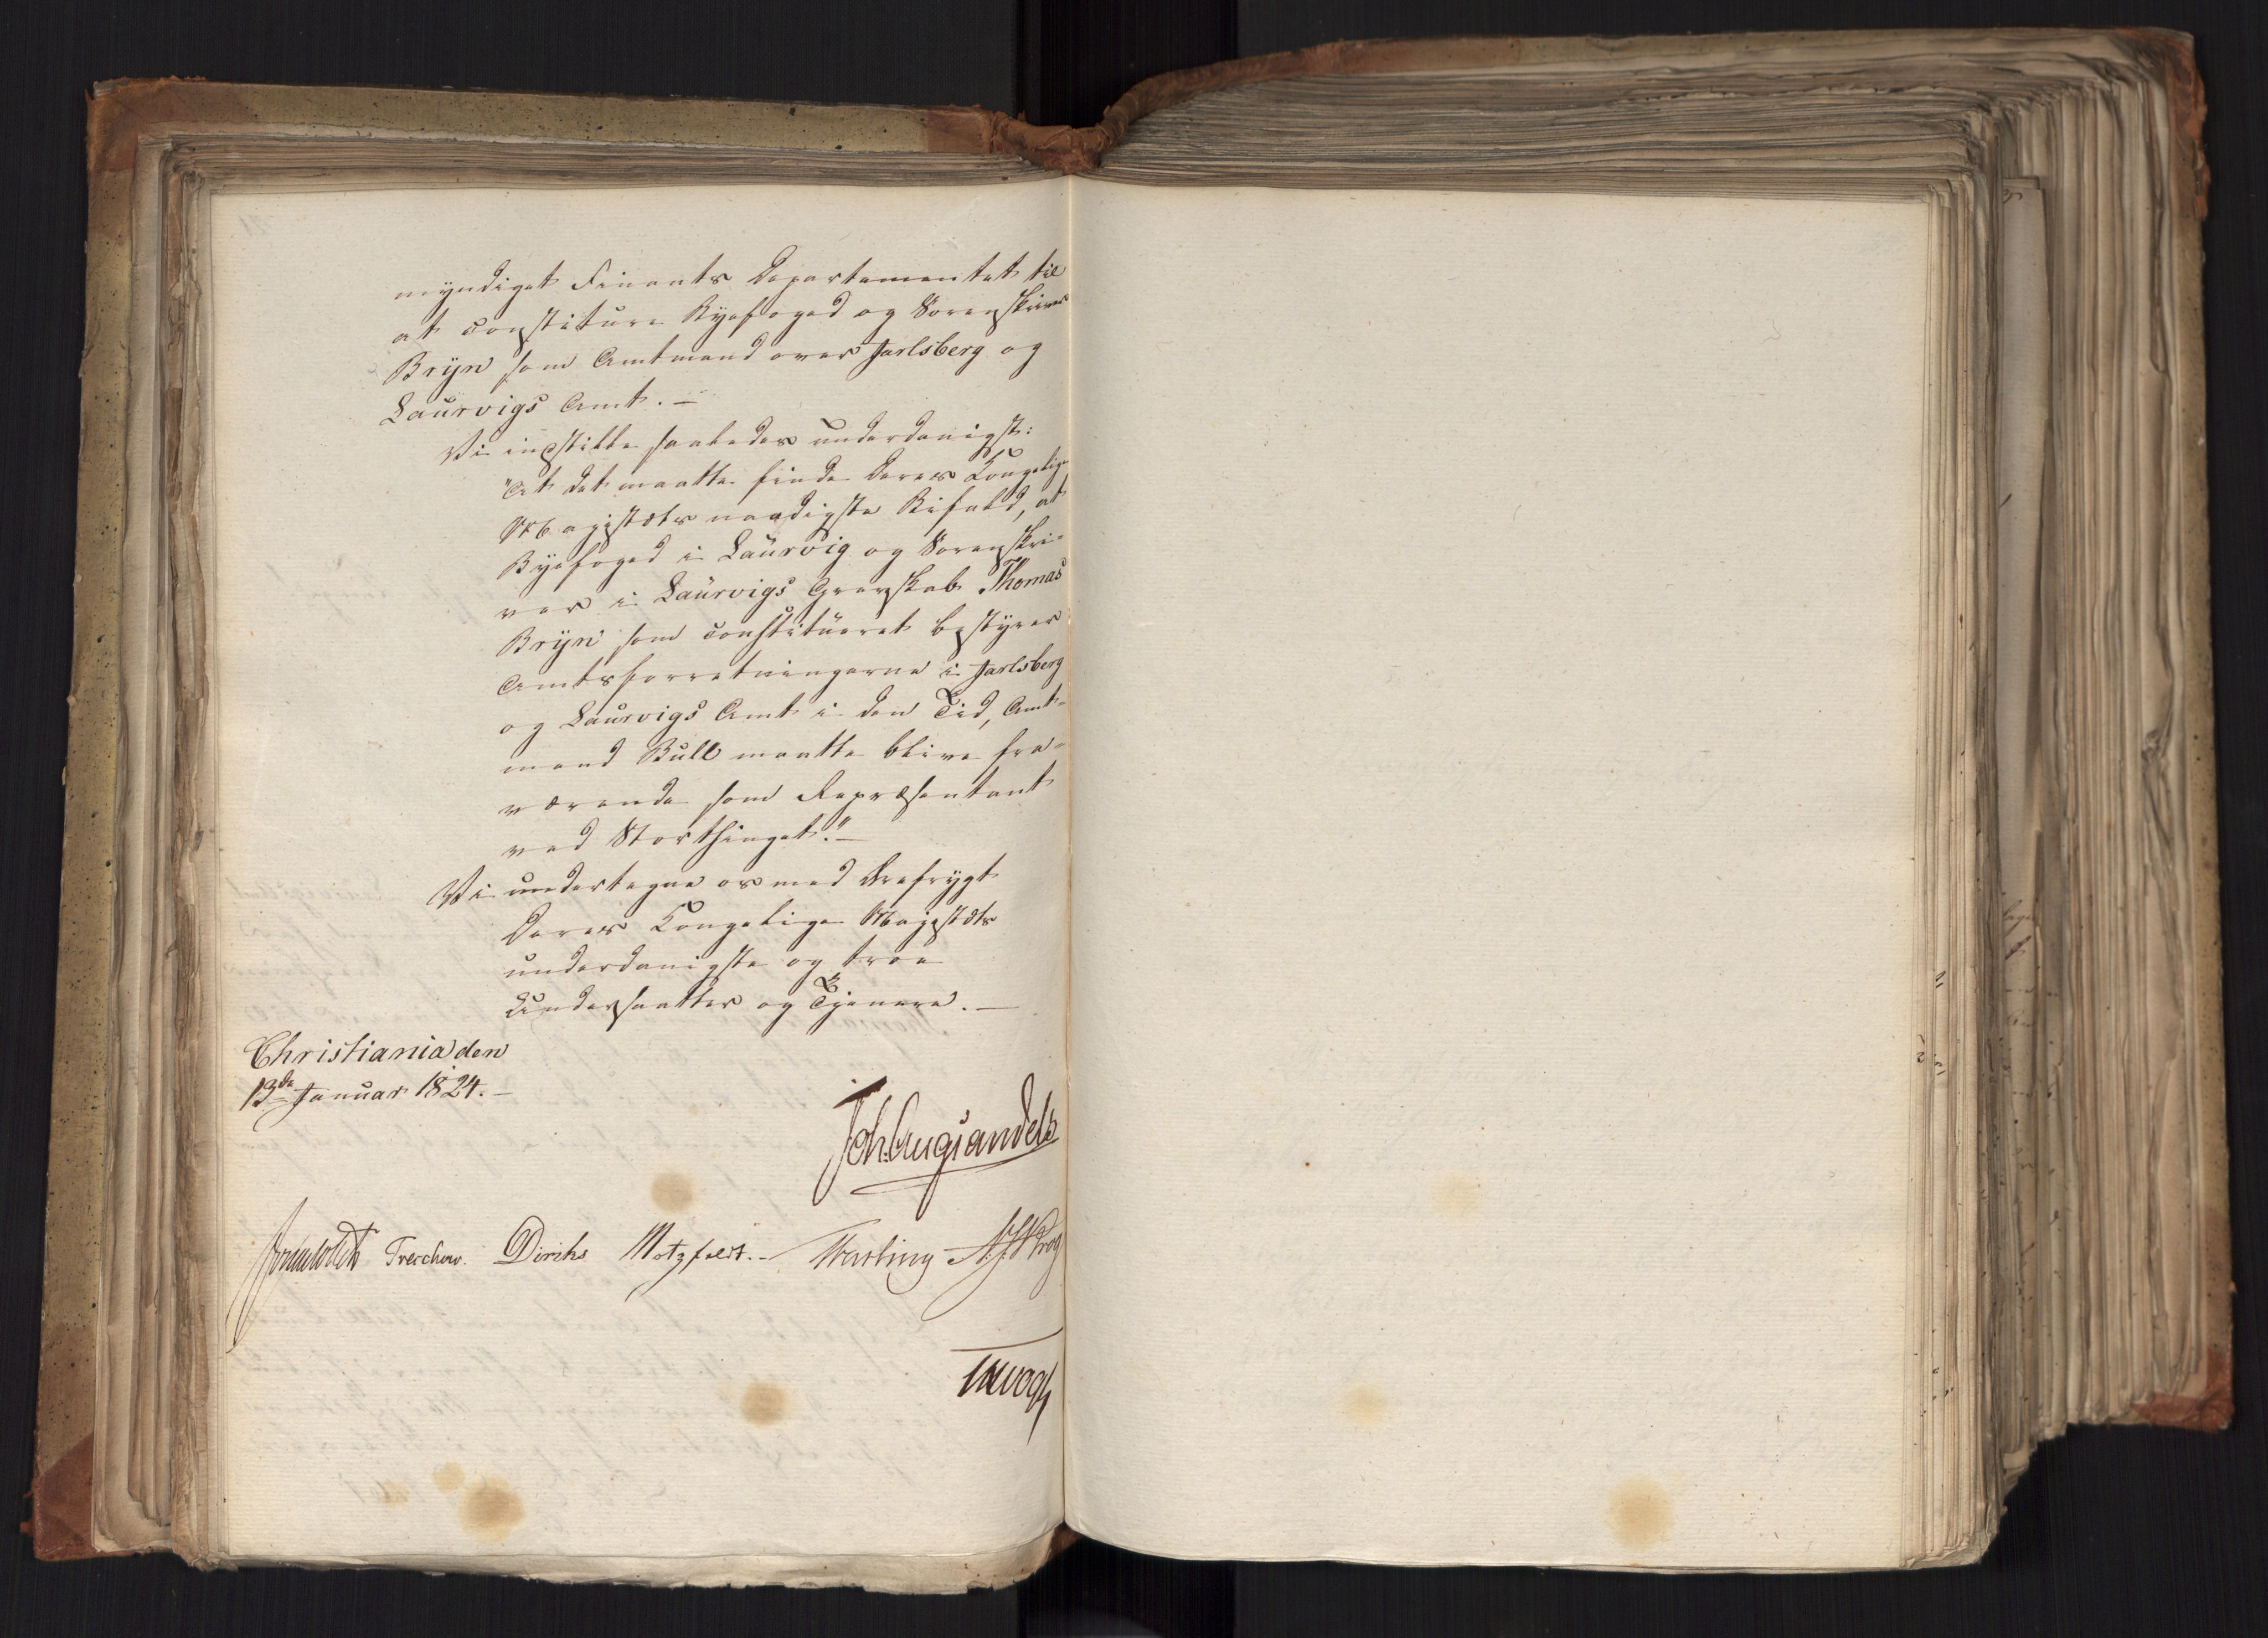 myndiget Finants Departementet til
at constituere Byefoged og Sorenskriver
Bryn som Amtmand over Jarlsberg og
Laurvigs Amt. —
Vi indstille saaledes underdanigst:
"At det maatte finde Deres Kongelige
Majestæts naadigste Bifald, at
Byefoged i Laurvig og Sorenskri-
ver i Laurvigs Grevskab Thomas
Bryn som constitueret bestyrer
Amtsforretningerne i Jarlsberg
og Laurvigs Amt i den Tid, Amt-
mand Bull maatte blive fra-
værende som Repræsentant
ved Storthinget." —
Vi undertegne os med Ærefrygt
Deres Kongelige Majestæts
underdanigste og troe
Undersaatter og Tjenere. —
Christiania den
13de Januar 1824. —
Joh. Aug. Sandels
Sommerhielm Treschow. Diriks Motzfeldt. — Fasting A. J. Krog
Vogt